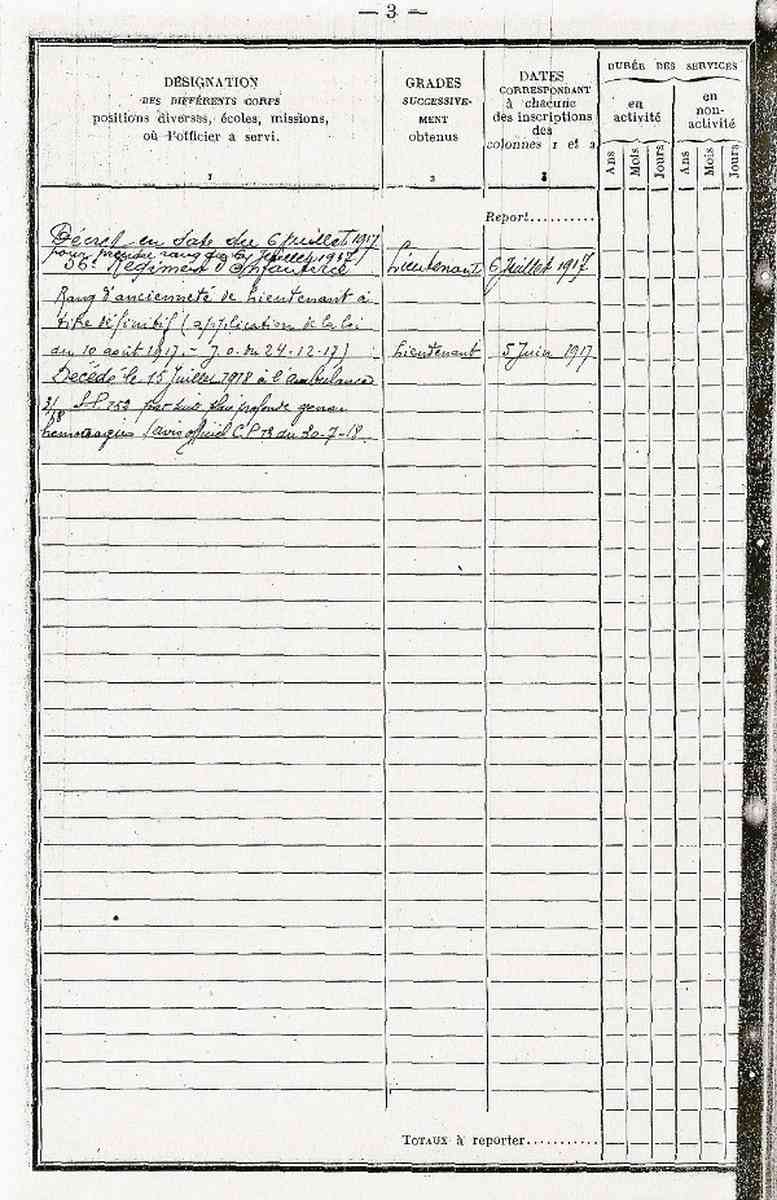 — 3 —
DÉSIGNATION
DES DIFFÉRENTS CORPS
positions diverses, écoles, missions,
où l'officier a servi.
1
GRADES
SUCCESSIVE-
MENT
obtenus
2
DATES
CORRESPONDANT
à chacune
des inscriptions
des
colonnes 1 et 2
3
DURÉE DES SERVICES
en
activité
en
non-
activité
Ans
Mois
Jours
Ans
Mois
Jours
Report..........
Décret en date du 6 Juillet 1917
pour prendre rang du 6 Juillet 1917
36e Régiment d'Infanterie Lieutenant 6 Juillet 1917
Rang d'ancienneté de Lieutenant à
titre définitif (application de la loi
du 10 août 1917. - J.O. du 24-12-17) Lieutenant 5 Juin 1917
Décédé le 15 Juillet 1918 à l'ambulance
S.P. plaie profonde
hemorragie (avis officiel C.P du 20-7-18
TOTAUX à reporter..........